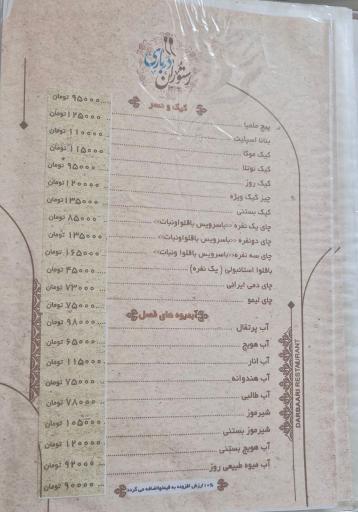 رستوران درباری
کیک و دسر
پیچ ملمبا ۹۵۰۰۰ تومان
بنانا اسپلیت ۱۲۵۰۰۰ تومان
کیک موکا ۱۱۰۰۰۰ تومان
کیک نوتلا ۱۱۵۰۰۰ تومان
کیک روز ۹۵۰۰۰ تومان
چیز کیک ویژه ۱۲۰۰۰۰ تومان
کیک بستنی ۱۳۵۰۰۰ تومان
چای یک نفره «باسرویس باقلواونبات» ۸۵۰۰۰ تومان
چای دونفره «باسرویس باقلواونبات» ۱۳۵۰۰۰ تومان
چای سه نفره «باسرویس باقلوا ونبات» ۱۶۵۰۰۰ تومان
باقلوا استانبولی ( یک نفره) ۴۵۰۰۰ تومان
چای دمی ایرانی ۷۳۰۰۰ تومان
چای لیمو ۷۵۰۰۰ تومان
آبمیوه های فصل
آب پرتقال ۹۸۰۰۰ تومان
آب هویج ۶۵۰۰۰ تومان
آب انار ۱۱۵۰۰۰ تومان
آب هندوانه ۷۵۰۰۰ تومان
آب طالبی ۷۸۰۰۰ تومان
شیرموز ۱۰۵۰۰۰ تومان
شیرموز بستنی ۱۲۰۰۰۰ تومان
آب هویج بستنی ۹۲۰۰۰ تومان
آب میوه طبیعی روز ۹۰۰۰۰ تومان
۱۰% ارزش افزوده به قیمتهااضافه می گردد
DARBAARI RESTAURANT